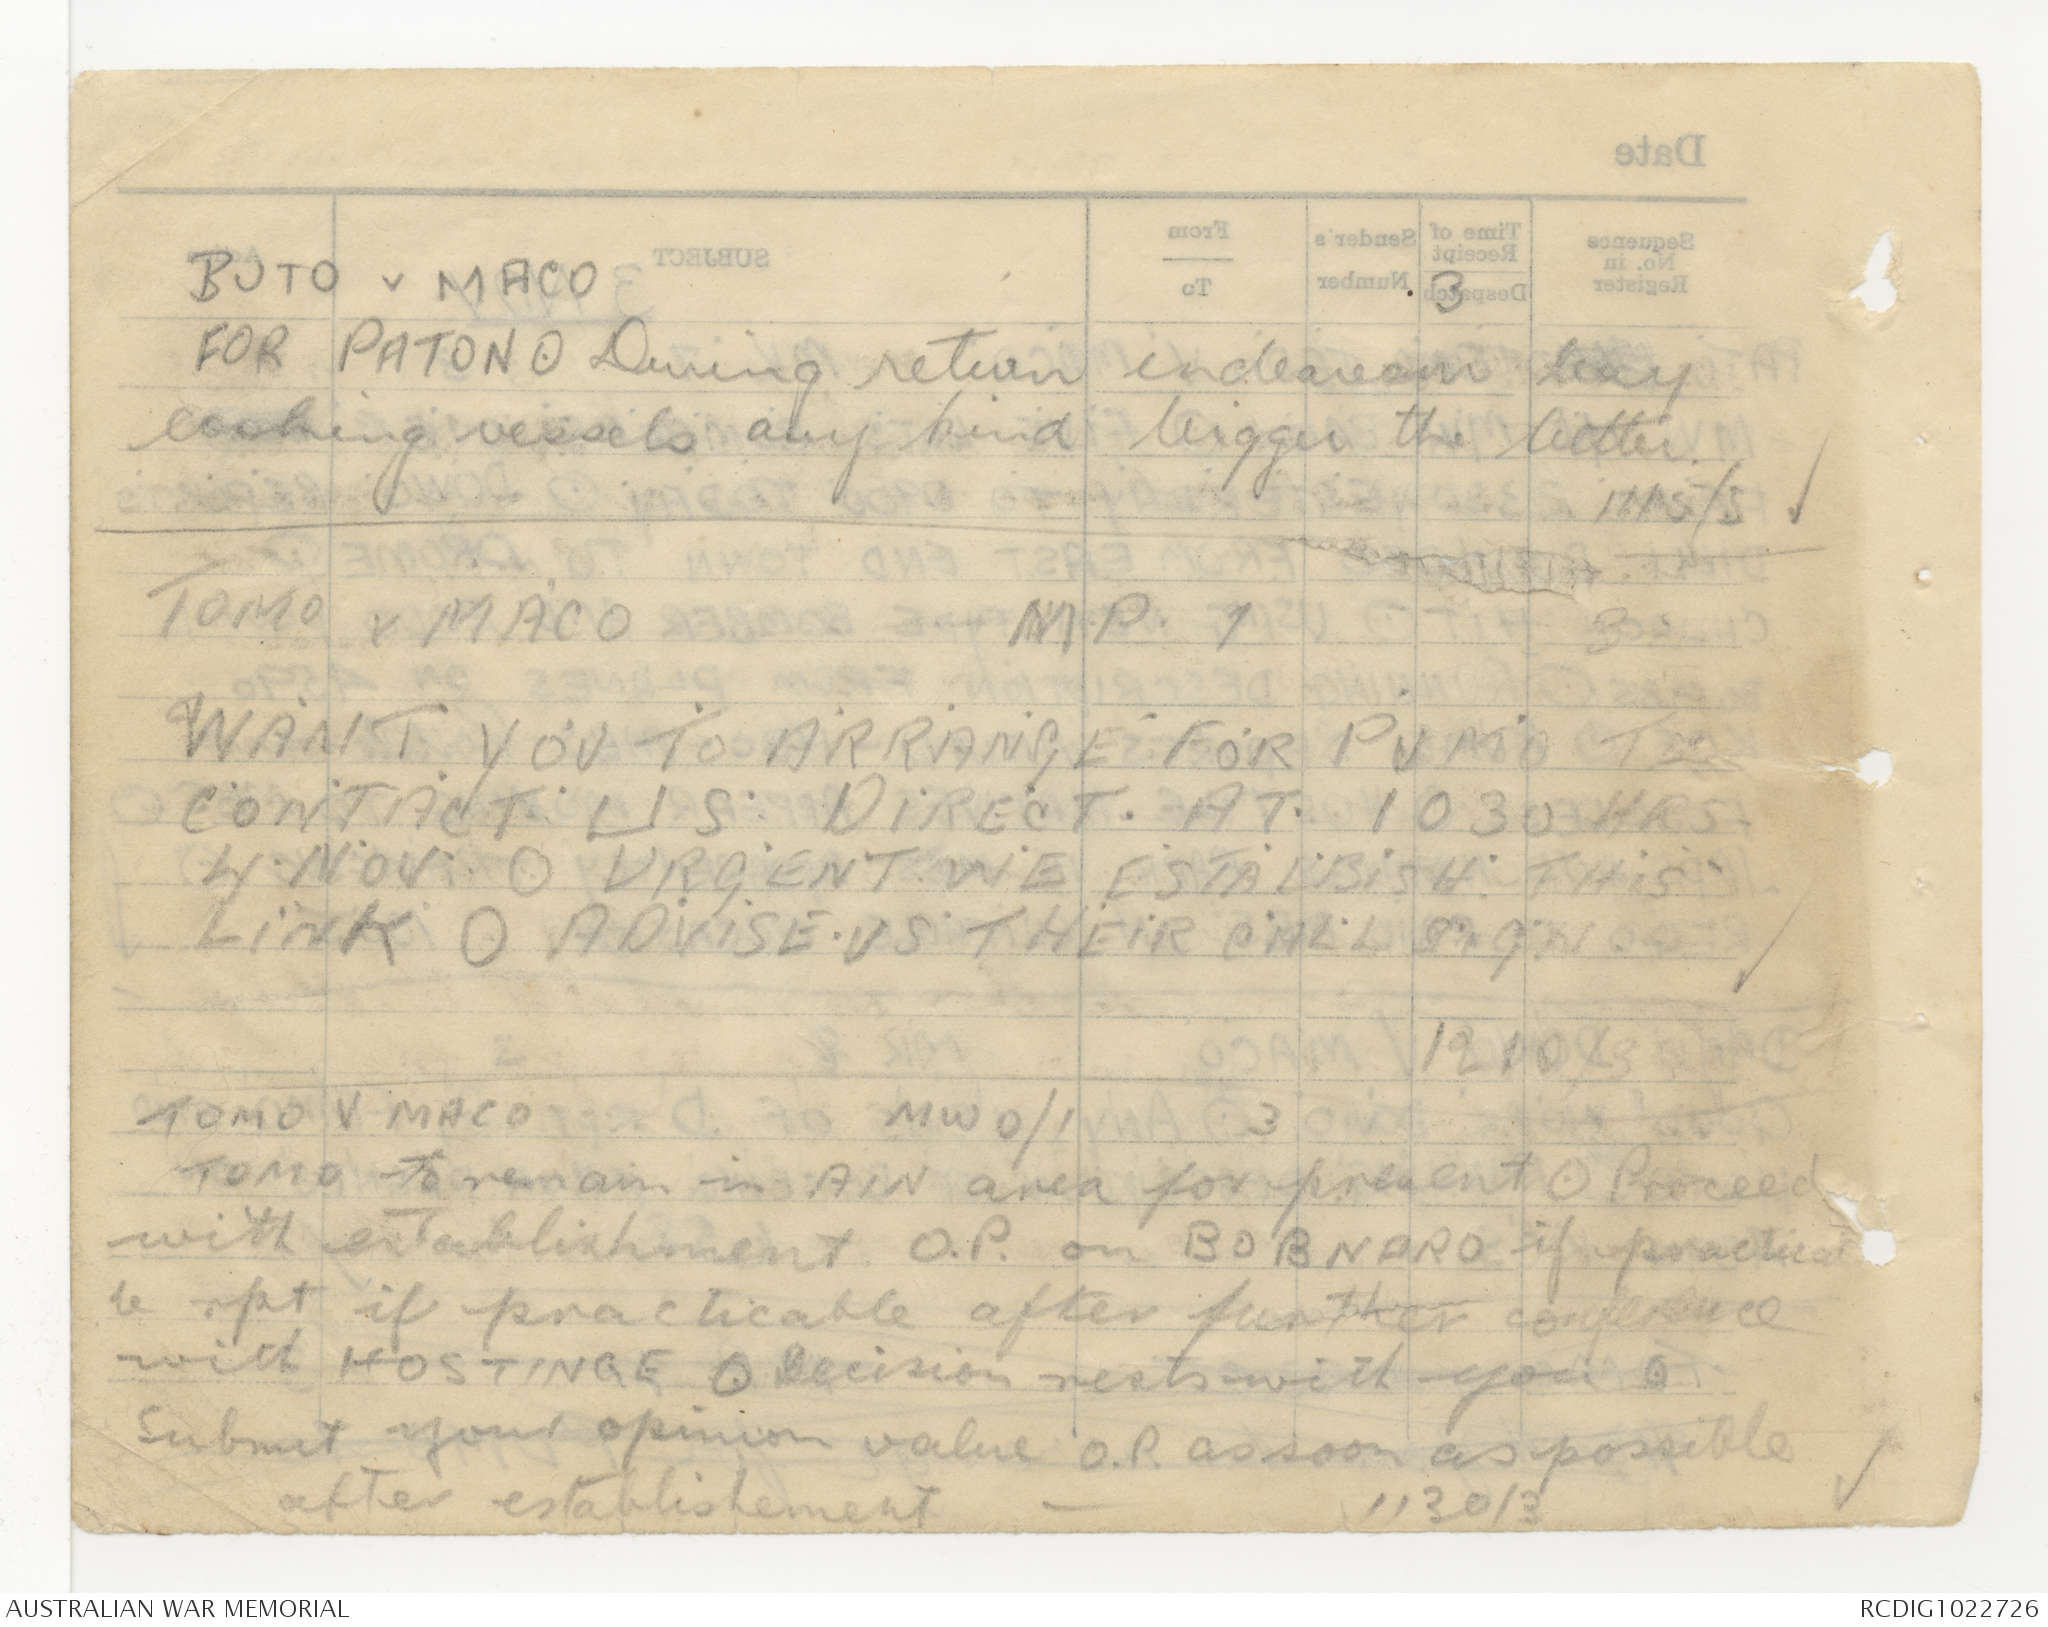 BUTO v MACO 3
FOR PATONO During return endeavour buy
cooking vessels any kind bigger the better.
1115/3
TOMO v MACO M.P. 7 3
WANT YOU TO ARRANGE FOR PUMO TO
CONTACT US DIRECT. AT. 1030 HRS.
4 NOV. O URGENT WE ESTALBISH THIS
LINK O ADVISE US THEIR CALL SIGN
1210/3
TOMO V MACO MWO/1 3
TOMO to remain in AIN area for present O Proceed
with establishment O.P. on BOBNARO if practicab
le rpt if practicable after further conference
with HOSTINGE O Decision rests with you O
Submit your opinion value O.P. as soon as possible
after establishement — 1130/3
AUSTRALIAN WAR MEMORIAL RCDIG1022726